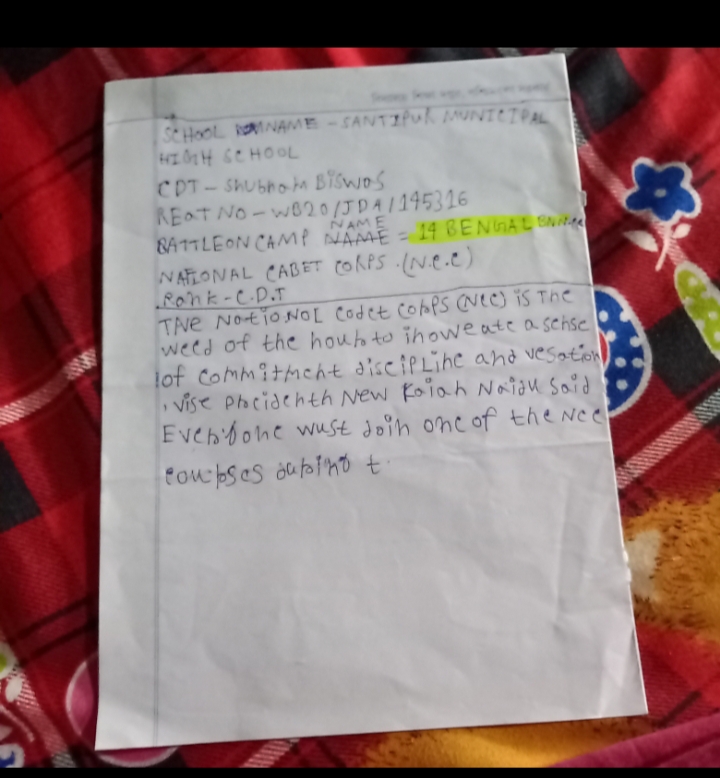 SCHOOL NAME - SANTIPUR MUNICIPAL
HIGH SCHOOL
CDT - Shubham Biswas
REGT NO - WB20/JDA/145316
NAME
BATTLEON CAMP NAME = 14 BENGAL
NATIONAL CADET CORPS. (N.C.C)
Rank - C.D.T
THe NatioNOL Codet CORPS (NCC) is The
weed of the hour to ihoweate a sehse
of commitmeht discipLihe and vesation
, vise Precidehth New Kaiah Naidu said
Everyohe wust Joih one of the NCC
courses during t.